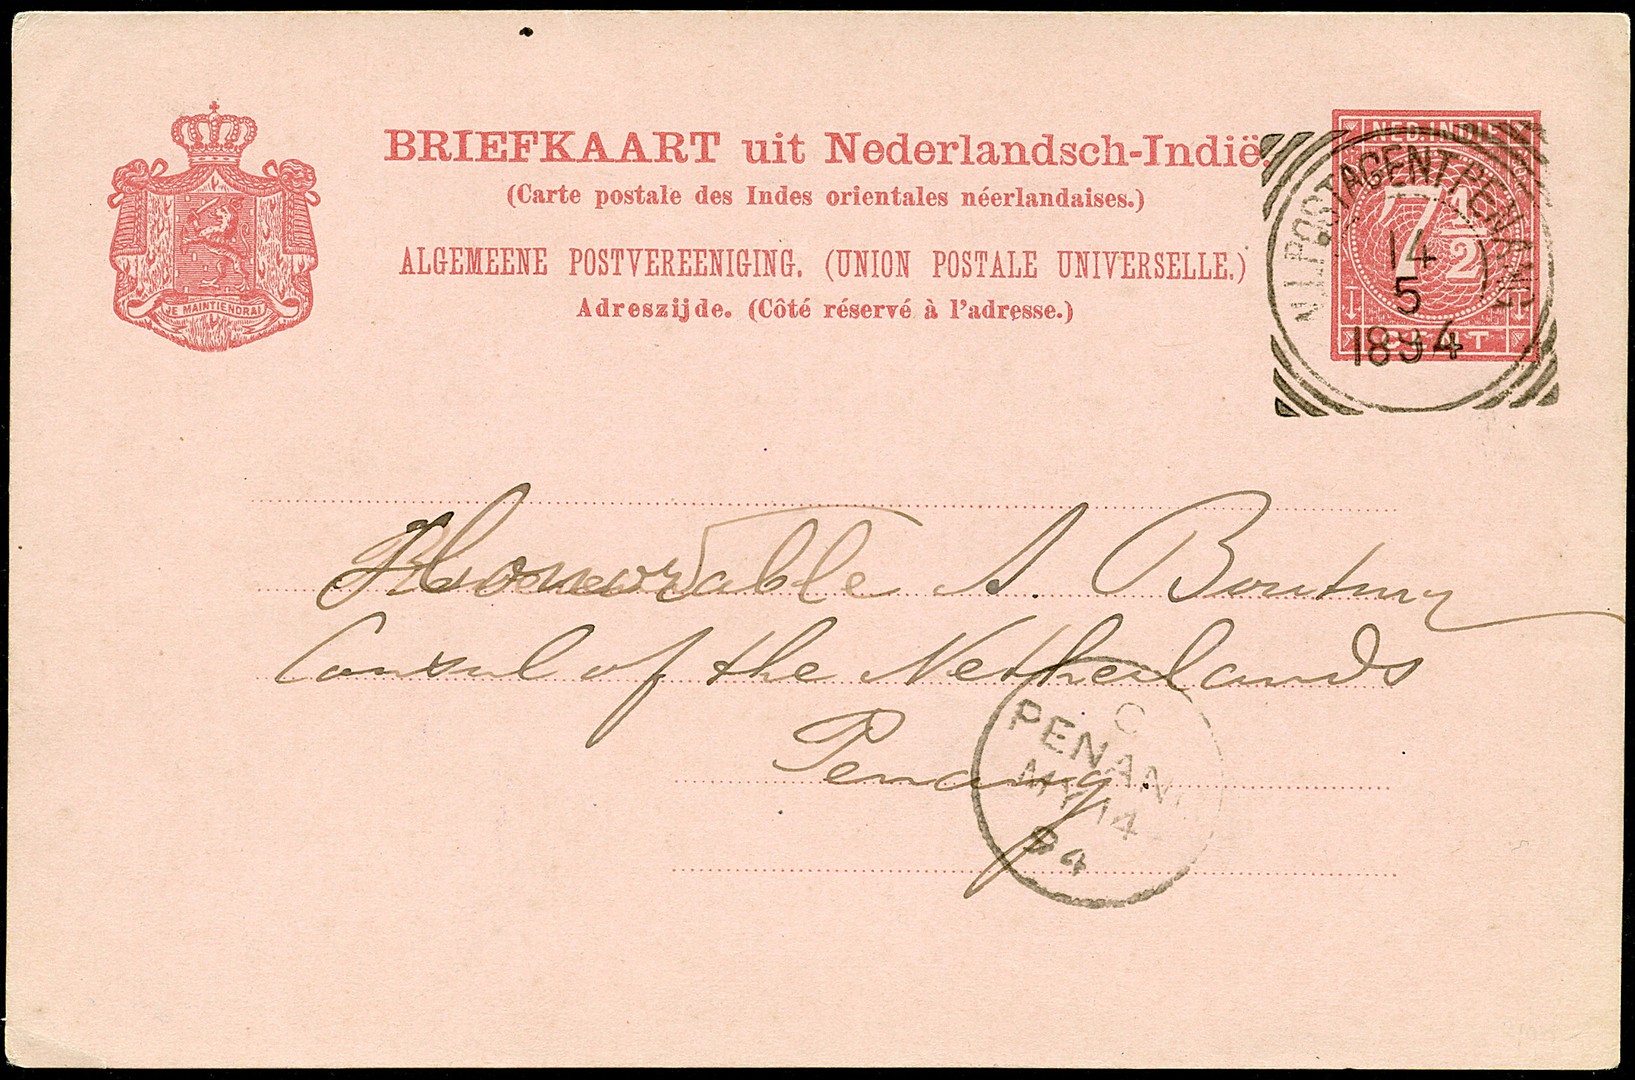 BRIEFKAART uit Nederlandsch-Indië.
(Carte postale des Indes orientales néerlandaises.)
ALGEMEENE POSTVEREENIGING. (UNION POSTALE UNIVERSELLE.)
Adreszijde. (Côté réservé à l'adresse.)
JE MAINTIENDRAI
NED. INDIE
7 1/2
CENT
N.I. POSTAGENT PENANG
14
5
1894
Honourable A. Boutmy
Consul of the Netherlands
Penang.
C
PENANG
MY 14
94